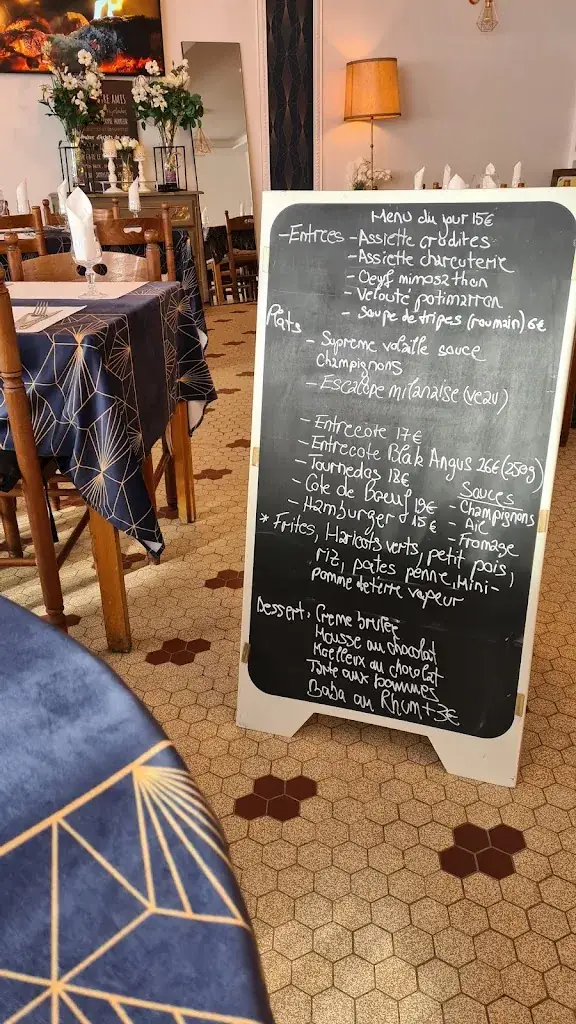 Menu du jour 15€
-Entrées - Assiette crudites
- Assiette charcuterie
- Oeuf mimosa thon
- Velouté potimarron
- Soupe de tripes (roumain) 6€
Plats
- Supreme volaille sauce
Champignons
- Escalope milanaise (veau)
- Entrecote 17€
- Entrecote Blak Angus 26€ (250g)
- Tournedos 18€
- Côte de Boeuf 19€
- Hamburger 15€
Sauces
- Champignons
- Ail
- Fromage
* Frites, Haricots verts, petit pois,
riz, pâtes penne, Mini-
pomme de terre vapeur
Dessert: Creme brulée
Mousse au chocolat
Moelleux au chocolat
Tarte aux pommes
Baba au Rhum +3€
AMIS